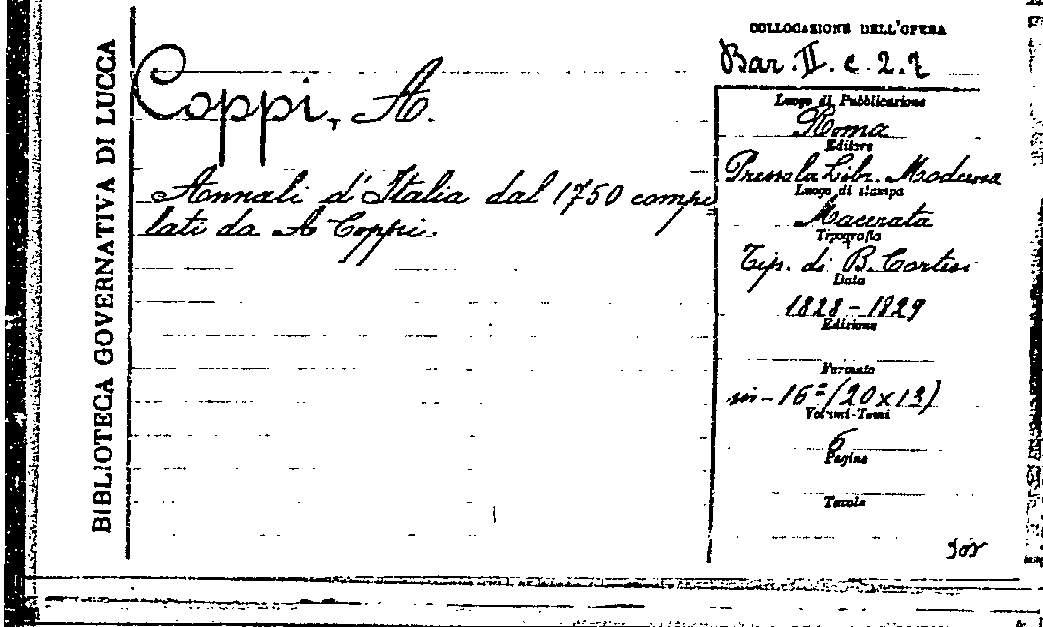 BIBLIOTECA GOVERNATIVA DI LUCCA
Coppi, A.
Annali d'Italia dal 1750 compi
lati da A Coppi.
COLLOCAZIONE DELL'OPERA
Bar. II. c. 2. 7
Luogo di Pubblicazione
Roma
Editore
Presso la Libr. Moderna
Luogo di stampa
Macerata
Tipografia
Tip. di B. Cortesi
Data
1828 - 1829
Edizione
Formato
in - 16° (20 x 13)
Volumi-Tomi
6
Pagine
Tavole